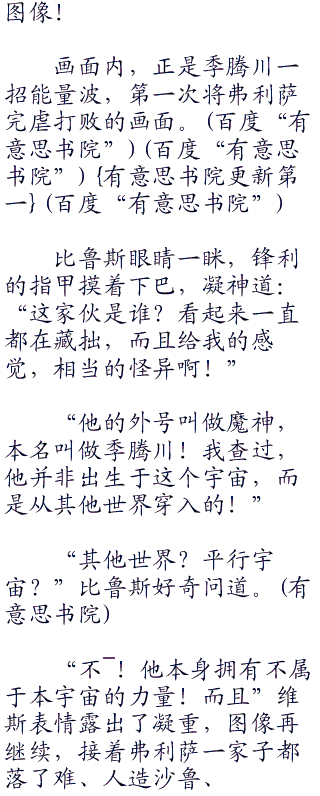 图像！
画面内，正是季腾川一
招能量波，第一次将弗利萨
完虐打败的画面。(百度“有
意思书院”)(百度“有意思
书院”){有意思书院更新第
一}(百度“有意思书院”)
比鲁斯眼睛一眯，锋利
的指甲摸着下巴，凝神道：
“这家伙是谁？看起来一直
都在藏拙，而且给我的感
觉，相当的怪异啊！”
“他的外号叫做魔神，
本名叫做季腾川！我查过，
他并非出生于这个宇宙，而
是从其他世界穿入的！”
“其他世界？平行宇
宙？”比鲁斯好奇问道。(有
意思书院)
“不¯！他本身拥有不属
于本宇宙的力量！而且”维
斯表情露出了凝重，图像再
继续，接着弗利萨一家子都
落了难、人造沙鲁、